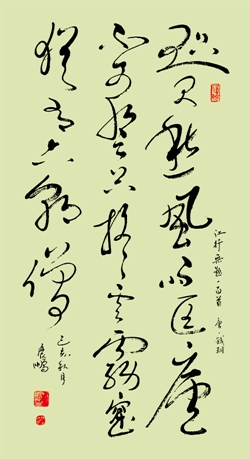 咫尺愁風雨匡廬
不可登只疑雲霧窟
猶有六朝僧
江行無題一百首 唐·錢珝
己亥秋月